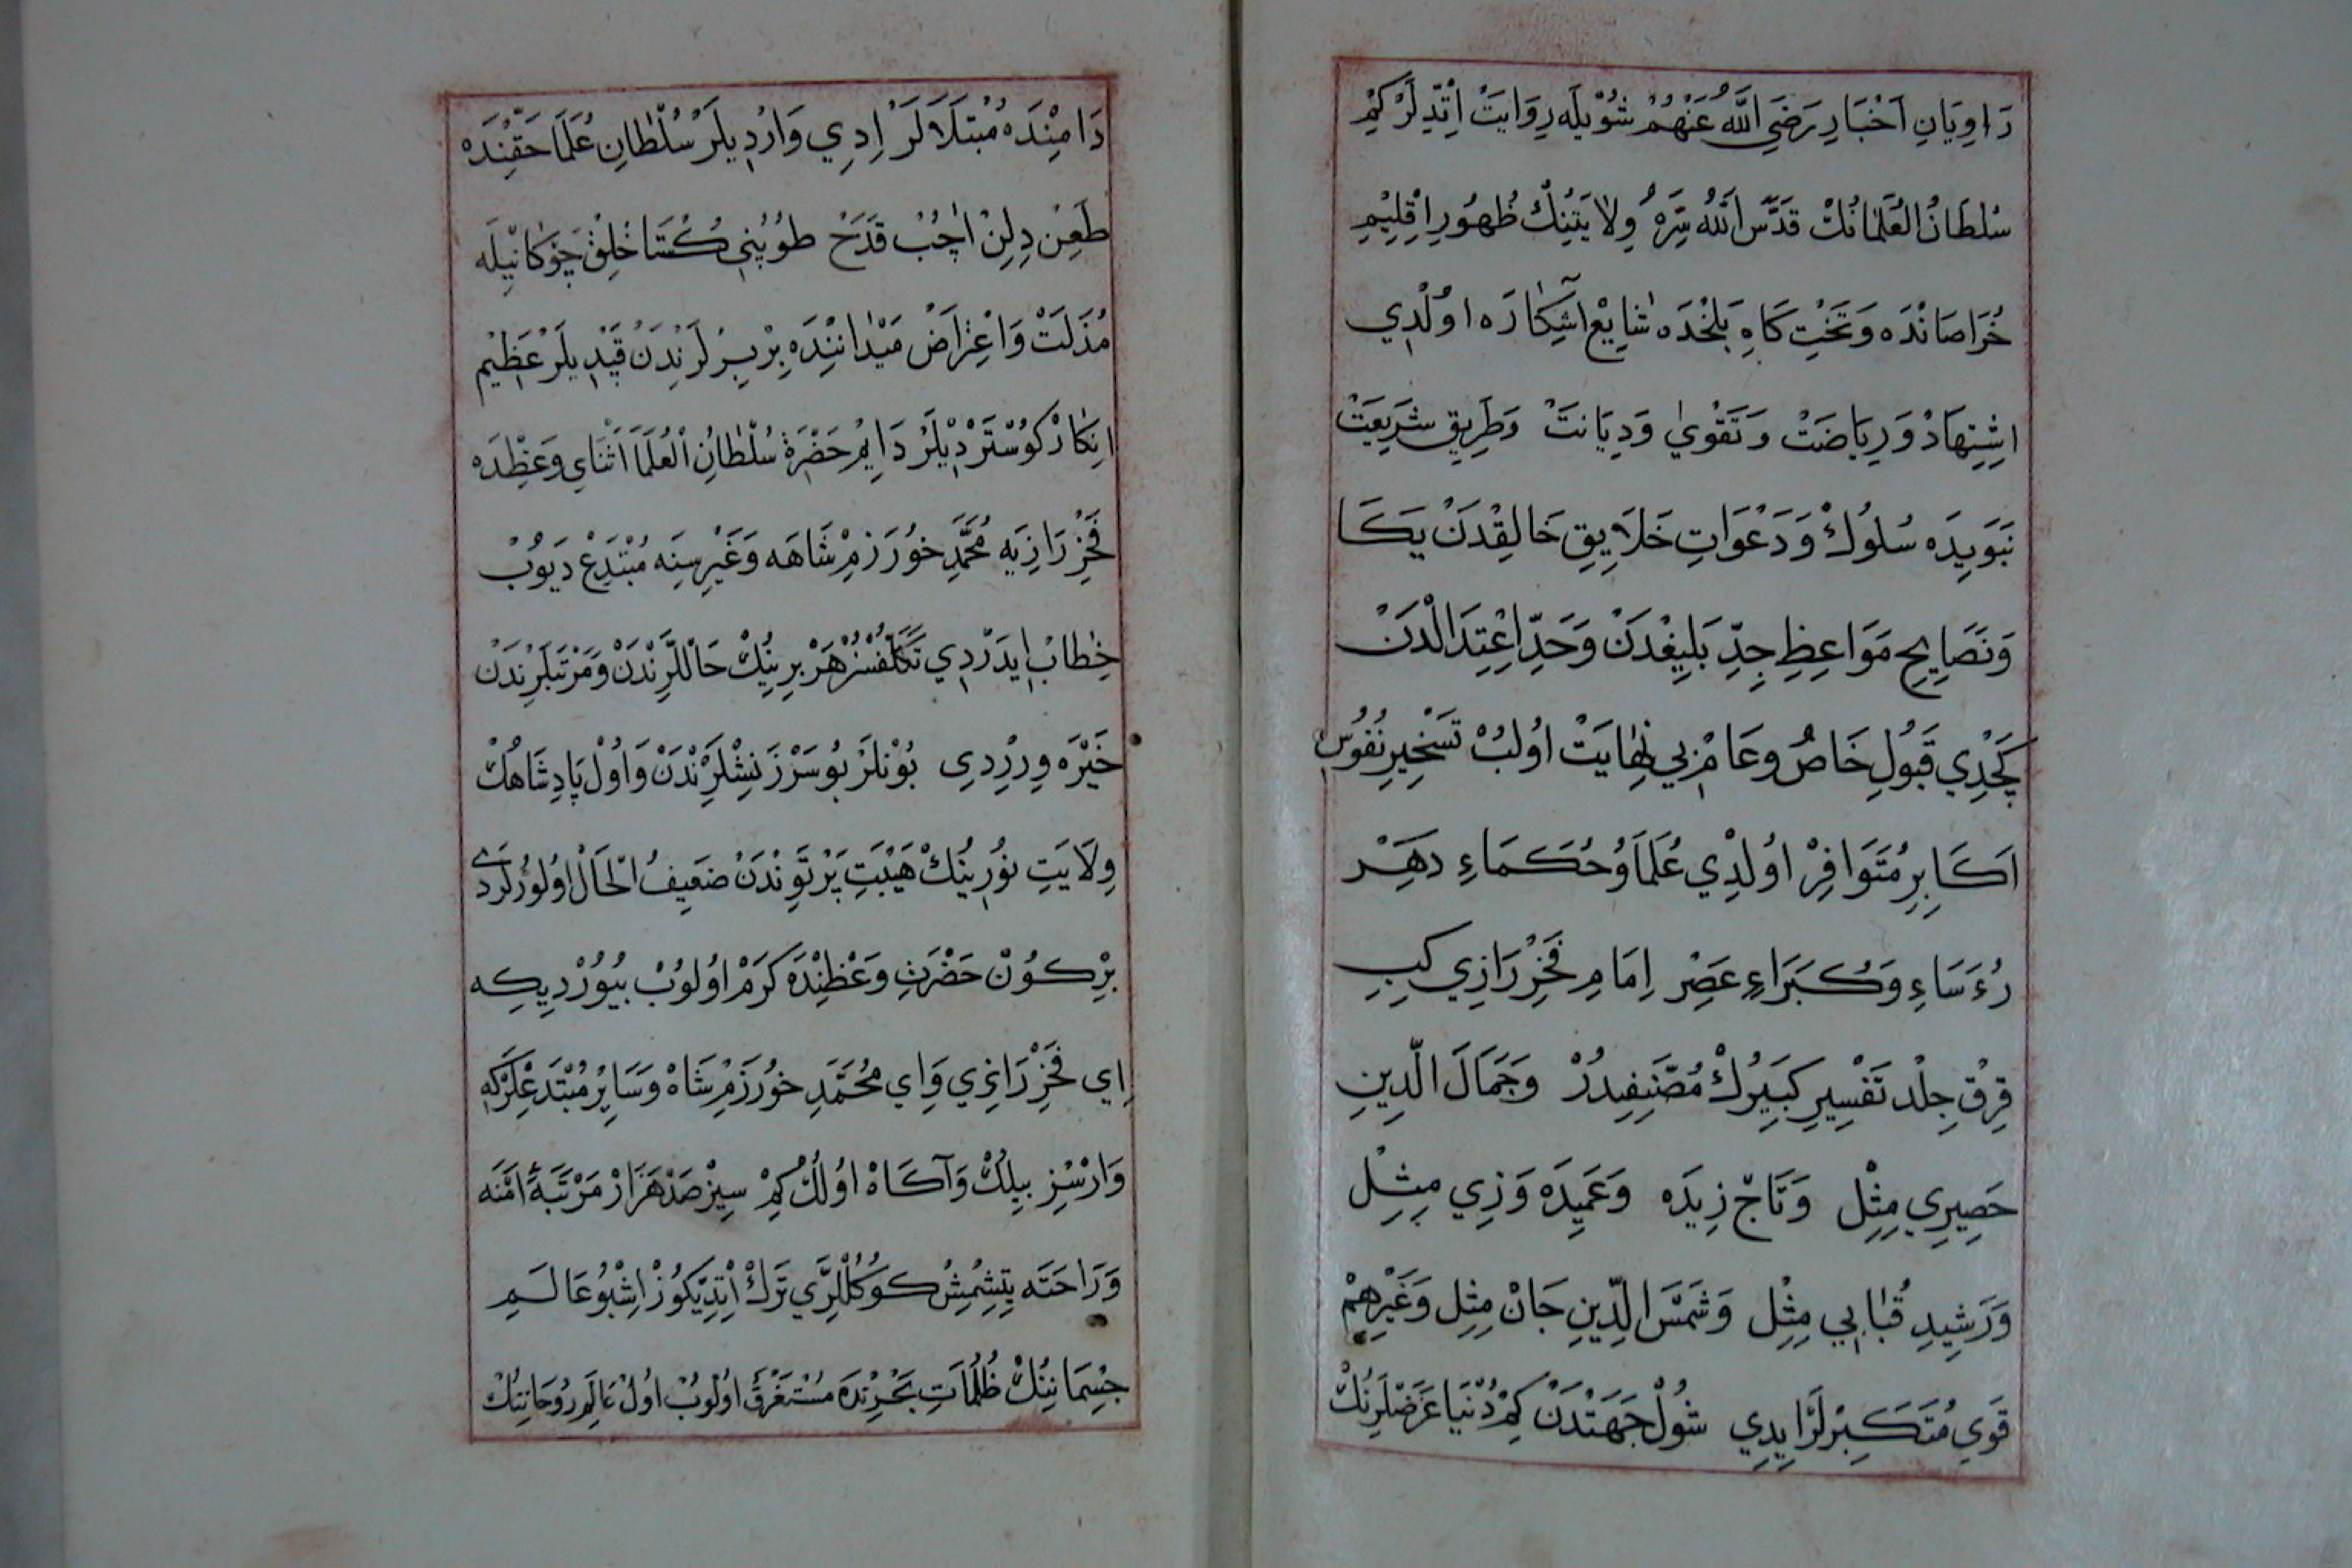 رَاوِيَانِ اَخْبَارِ رَضَىِ اللّٰهُ عَنْهُمْ شُوْيلَه رِوَايَتْ اِتْدِّلَرْ كِمْ
سُلطَانُ الْعُلَمَانُكْ قَدَّسَ اللّٰهُ سِرَّهُ وِلَايَتِنِكْ ظُهُورِ اِقْلِيْمِ
خُرَاصَانْدَه وَتَخْتِ كَاهِ بَلْخْدَه شَايِعْ آشِكَارَه اوُلْدِي
اِشِتِهَادْ وَرِيَاضَتْ وَتَقْوٰي وَدِيَانَتْ وَطَرِيقِ شَرِيعَتْ
نَبَوِيدَه سُلوُكْ وَدَعْوَاتِ خَلَايِقِ خَالِقْدَنْ يَكَا
وَنَصَايِحِ مَوَاعِظِ جِدِّ بَلِيغْدَنْ وَحَدِّ اِعْتِدَالْدَنْ
كَچْدِي قَبُولِ خَاصُ وعَامْ بِي نِهَايَتْ اوُلُبْ تَسْخِيرِ نُفُوسِ
اَكَابِرِ مُتَوَافِرْ اوُلدِْي عُلَمَا وُحُكَمَاءِ دهَرْ
رُءَسَاءِ وَكُبَرَاءِ عَصِرْ اِمَامِ فَخِرْ رَازِي كِبِ
قِرْقْ جِلِدْ تَفْسِيرِ كَبَيرُكْ مُصَنِّيفِدُرْ وَجَمَالَ الّدِينِ
حَصِيرِي مِثِلْ وَتَاجْ زِيدَه وَعَمِيدَه وَزِي مِثِلْ
وَرَشِيدِ قُبَابِي مِثِلْ وَشَمْسَ الِدِّينِ جَانْ مِثِل وَغَيْرِهِمْ
قَوِي مُتَكَبِّرْلَرْ ايدِي شُولْ جَهَتْدَنْ كِمْ دُنْيَا غَرَضْلَرِنُكْ
دَامِنْدَه مُبْتَلَالَرْ اِدِي وَارْدِيلَرْ سُلْطَانِ عُلَمَا حَقِّنْدَه
طَعِنْ دِلِنْ اچُبْ قَدَحْ طوُپُنِي كُسْتَاخْلِقْ چَوْكَانْيِلَه
مُذَلَتْ وَاعْتِرَاضْ مَيْدَانِنْدَه بِرْ بِرْلَرْنِدَنْ قَپْدِيلَرْ عَظِيمْ
اِنكَارْ كوُسْتَرْدِيْلَرْ دَايِمْ حَضْرَةِ سُلْطَانُ الْعُلَمَا اَثْنَايِ وَعَظِدَه
فَخِرْ رَازِيَه مُحَمَّدِ خوُرَزمْ شَاهَه وَغَيْرِسِنَه مُبْتَدِعْ دَيوُبْ
خِطَابْ اِيدَرْدِي تَكَلُّفْسُزْ هَرْ بِرِينِكْ حَالْلَرِنْدَنْ وَمَرْتَبَلَرِنْدَنْ
خَبَرْ وِرِرْدِي بُوْنلَرْ بُو سَرْزَنِشْلَرِنْدَنْ وَاوُلْ پَادِشَاهُكْ
وِلَايَتِ نوُرِينُكْ هَيْبَتِ پَرْتَوِنْدَنْ ضَعِيفُ الْحَالْ اوُلوُرْلَرْدِي
بِرْ كُونْ حَضْرَتِ وَعْظِنْدَه كَرَمْ اوُلوُبْ بُيوُرْدِيكِه
اِي فَخِرْ رَازِي وَاِي مُحَمَّدِ خوُرَزمْ شَاهْ وَسَايِرْ مُبْتَدِعْلَرْكِه
وَارْسُزِ بيلِكْ وَآكَاهْ اوُلُكْ كِمْ سِيزْ صَدْ هَزَارْ مَرْتَبَهٔ اَمْنَه
وَرَاحَتَه يِتِشِمِشْ كوُكُلْلَرِي تَرْكْ اِتِدِّيكُوزْ اِشْبُو عَالَمِ
جِسْمَانِنُكْ ظُلُمَاتِ بَحْرِنْدَه مُسْتَغْرَقْ اوُلوُبْ اوُلْ عَالَمِ رُوُحَانِنُكْ